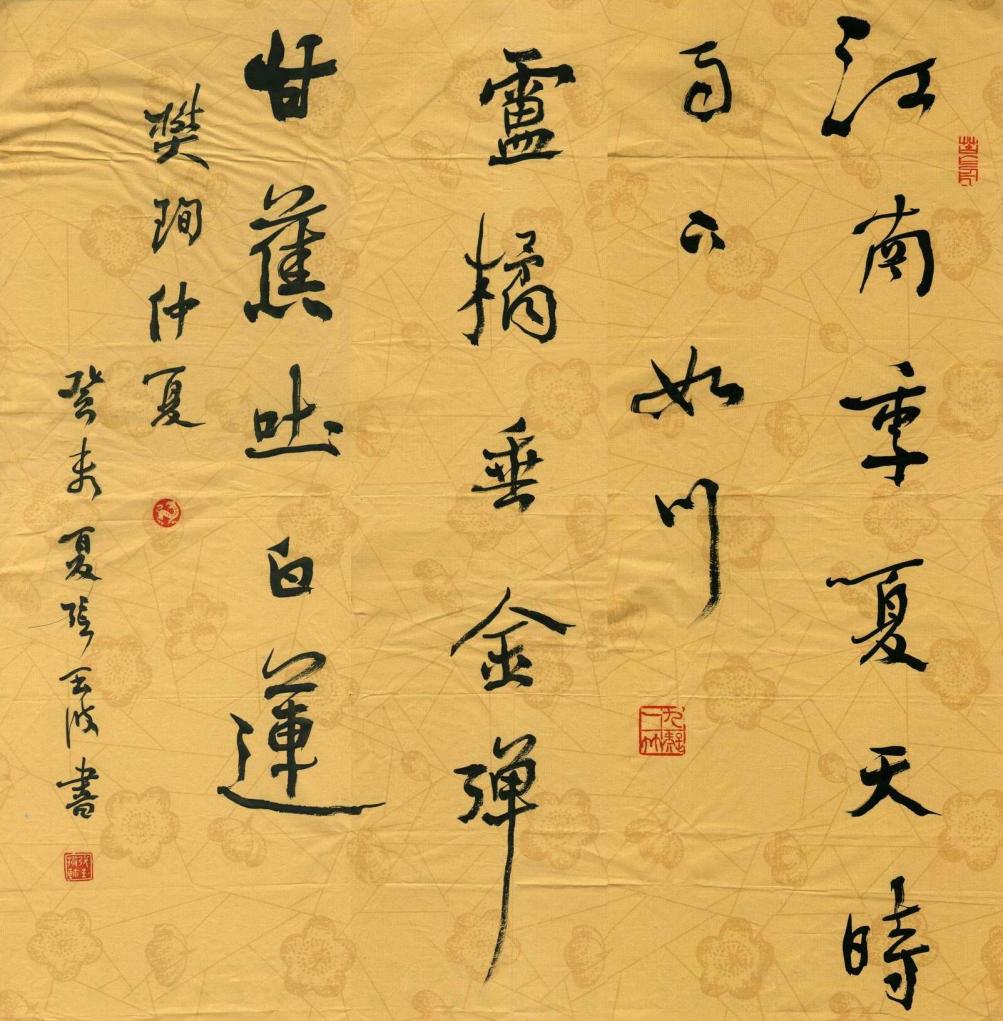 江南季夏天時
雨下如川
盧橘垂金弹
甘蕉吐白蓮
樊珣仲夏
癸未夏張玉波書